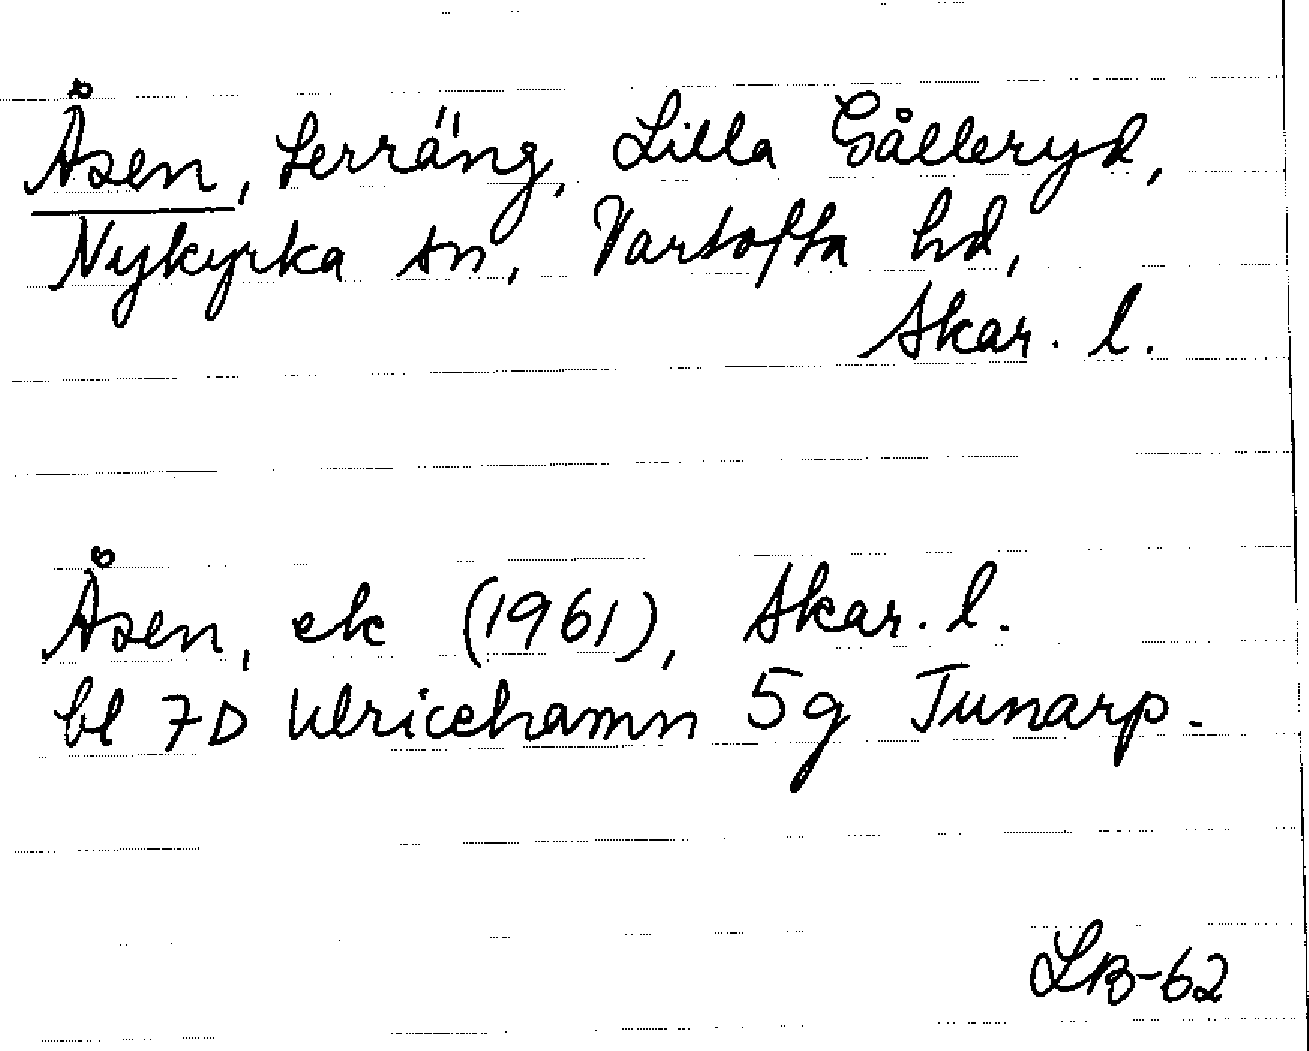 Åsen, Lerräng, Lilla Gålleryd,
Nykyrka sn, Vartofta hd,
Skar. l.
Åsen, ek (1961), Skar. l.
bl 7D Ulricehamn 5g Tunarp.
LB-62